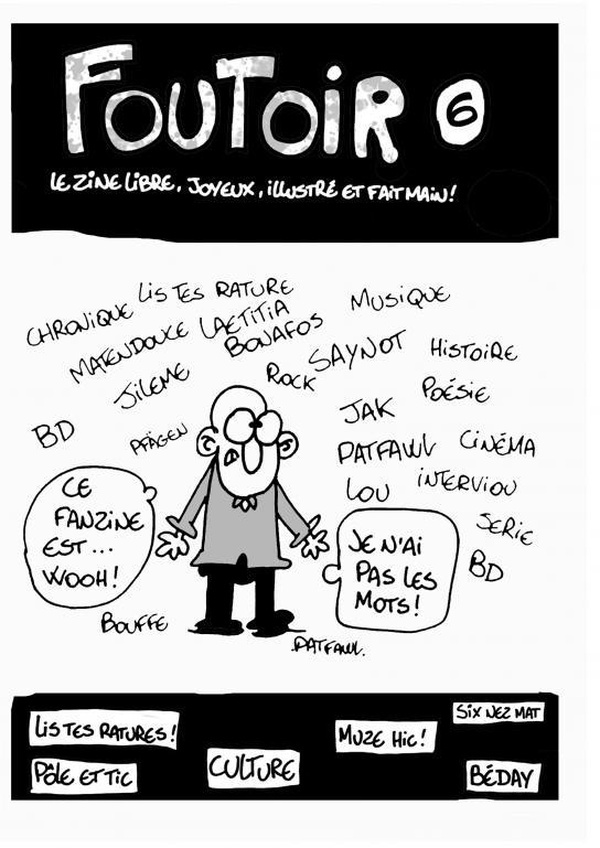 FOUTOIR 6
LE ZINE LIBRE, JOYEUX, ILLUSTRÉ ET FAIT MAIN!
CHRONIQUE
LIS TES RATURE
MUSIQUE
MATENDOUCE
LAETITIA
BONAFOS
SAYNOT
HISTOIRE
JILEME
ROCK
POÉSIE
BD
PFÄGEN
JAK
PATFAWL
CINÉMA
LOU
INTERVIOU
SERIE
BD
CE
FANZINE
EST...
WOOH!
JE N'AI
PAS LES
MOTS!
BOUFFE
.PATFAWL.
LIS TES RATURES!
MUZE HIC!
SIX NEZ MAT
PÔLE ET TIC
CULTURE
BÉDAY